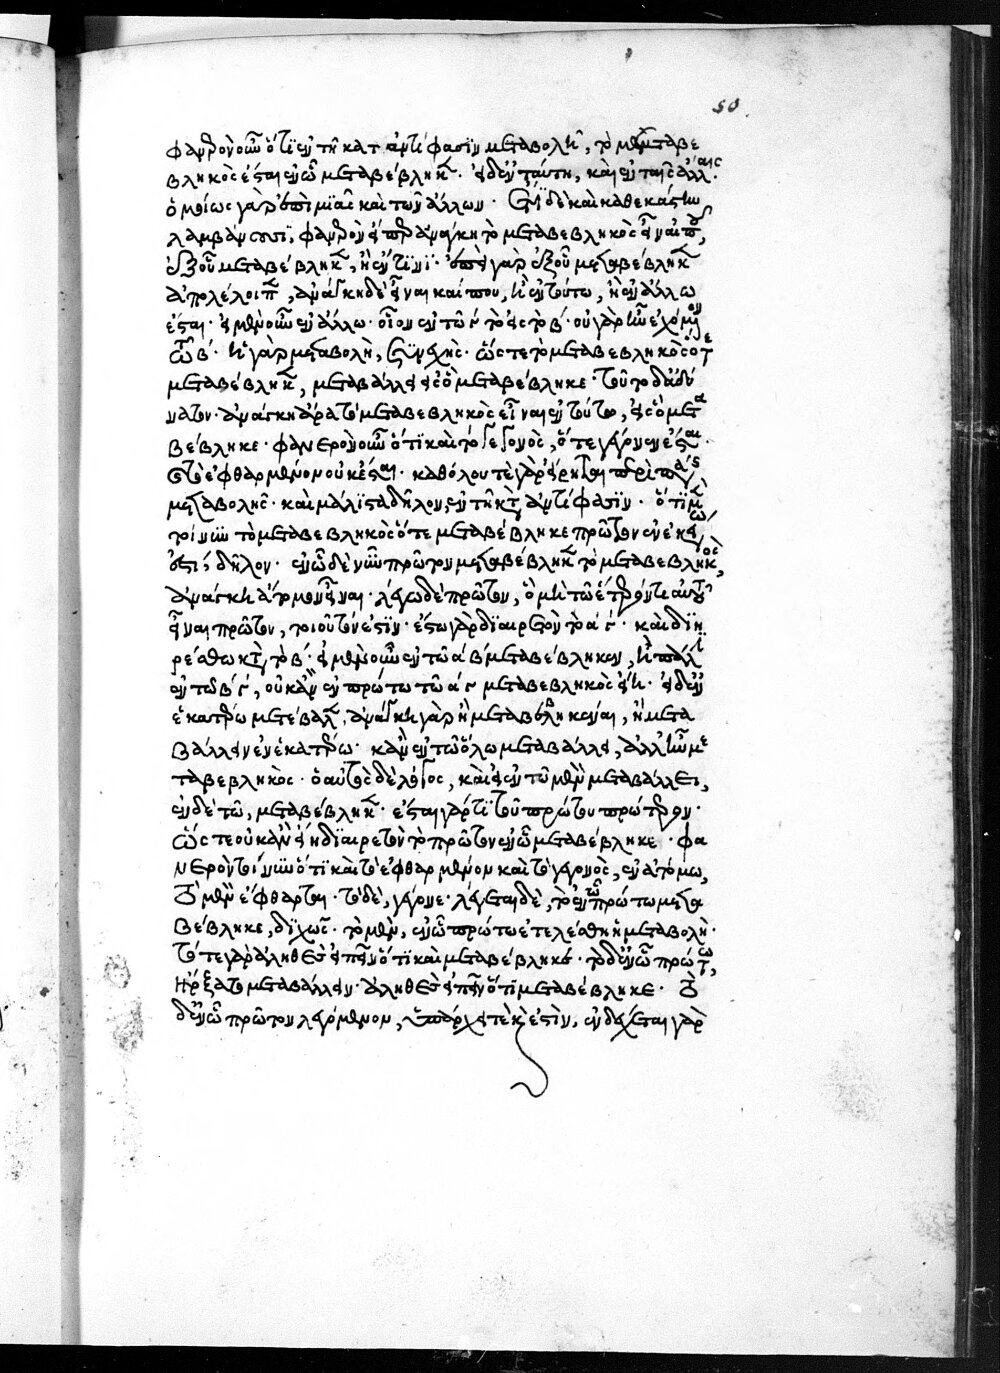 50
φανερὸν οὖν ὅτι ἐν τῇ κατ ἀντίφασιν μεταβολῇ, τὸ μεταβε
βληκὸς ἔσται ἐν ᾧ μεταβέβληκεν. εἰ δ' ἐν ταύτῃ, καὶ ἐν ταῖς ἄλλαις.
ὁμοίως γὰρ ἐπὶ μιᾶς καὶ τῶν ἄλλων. ἔτι δὲ καὶ καθ' ἕκαστον
λαμβάνουσι, φανερὸν εἴπερ ἀνάγκη τὸ μεταβεβληκὸς εἶναί που,
ἐξ οὗ μεταβέβληκεν, ἢ ἔν τινι. ἐπεὶ γὰρ ἐξ οὗ μεταβέβληκεν
ἀπολέλοιπεν, ἀνάγκη δὲ εἶναι καί που, ἢ ἐν τούτω, ἢ ἐν ἄλλω
ἔσται. εἰ μὲν οὖν ἐν ἄλλω. οἷον ἐν τῶ γ τὸ εἰς τὸ β. οὐ γὰρ ἦν ἐχόμενον
τῶ β. ἡ γὰρ μεταβολὴ, συνεχής. ὥστε τὸ μεταβεβληκὸς ὅτε
μεταβέβληκεν, μεταβάλλει εἰς ὃ μεταβέβληκε. τοῦτο δ' ἀδύ
νατον. ἀνάγκη ἄρα τὸ μεταβεβληκὸς εἶναι ἐν τούτω, εἰς ὃ μετα
βέβληκε. φανερὸν οὖν ὅτι καὶ τὸ γεγονὸς, ὅτε γέγονεν ἔσται.
τὸ ἐφθαρμένον οὐκ ἔσται. καθόλου τε γὰρ εἴρηται περὶ πάσης
μεταβολῆς. καὶ μάλιστα δῆλον, ἐν τῇ κατ' ἀντίφασιν. ὅτι μὲν
τοίνυν τὸ μεταβεβληκὸς ὅτε μεταβέβληκε πρῶτον ἐν ἐκείνω
ἐστί, δῆλον. ἐν ᾧ δὲ νῦν πρῶτον μεταβέβληκεν τὸ μεταβεβληκὸς,
ἀνάγκη ἄτομον εἶναι. λέγω δὲ πρῶτον, ὃ μὴ τῶ ἕτερόν τι αὐτοῦ
εἶναι πρῶτον, τοιοῦτόν ἐστιν. ἔστω γὰρ διαιρετὸν τὸ α γ. καὶ διῃ
ρήσθω κατὰ τὸ β. εἰ μὲν οὖν ἐν τῶ α β μεταβέβληκεν, ἢ πάλιν
ἐν τῶ β γ, οὐκ ἂν ἐν πρώτω τῶ α γ μεταβεβληκὸς εἴη. εἰ δ' ἐν
ἑκατέρω μετέβαλλεν, ἀνάγκη γὰρ ἢ μεταβεβληκέναι, ἢ μετα
βάλλειν ἐν ἑκατέρω. κἂν ἐν τῶ ὅλω μεταβάλλει, ἀλλ' ἦν με
ταβεβληκός. ὁ αὐτὸς δὲ λόγος, καὶ εἰ ἐν τῶ μὲν μεταβάλλει,
ἐν δὲ τῶ, μεταβέβληκεν. ἔσται γάρ τι τοῦ πρώτου πρότερον.
ὥστε οὐκ ἂν εἴη διαιρετὸν τὸ πρῶτον ἐν ᾧ μεταβέβληκε. φα
νερὸν τοίνυν ὅτι καὶ τὸ ἐφθαρμένον καὶ τὸ γεγονὸς, ἐν ἀτόμω,
τὸ μὲν ἔφθαρται. τὸ δὲ, γέγονε. λέγεται δὲ, τὸ ἐν ᾧ πρώτω μετα
βέβληκε, διχῶς. τὸ μὲν, ἐν ᾧ πρώτω ἐτελέσθη ἡ μεταβολή.
τότε γὰρ ἀληθὲς εἰπεῖν ὅτι καὶ μεταβέβληκε. τὸ δ' ἐν ᾧ πρώτω,
ἤρξατο μεταβάλλειν. ἀληθὲς εἰπεῖν ὅτι μεταβέβληκε. τὸ
δ' ἐν ᾧ πρῶτον λεγόμενον, ὑπάρχει τε καὶ ἔστιν. ἐνδέχεται γὰρ